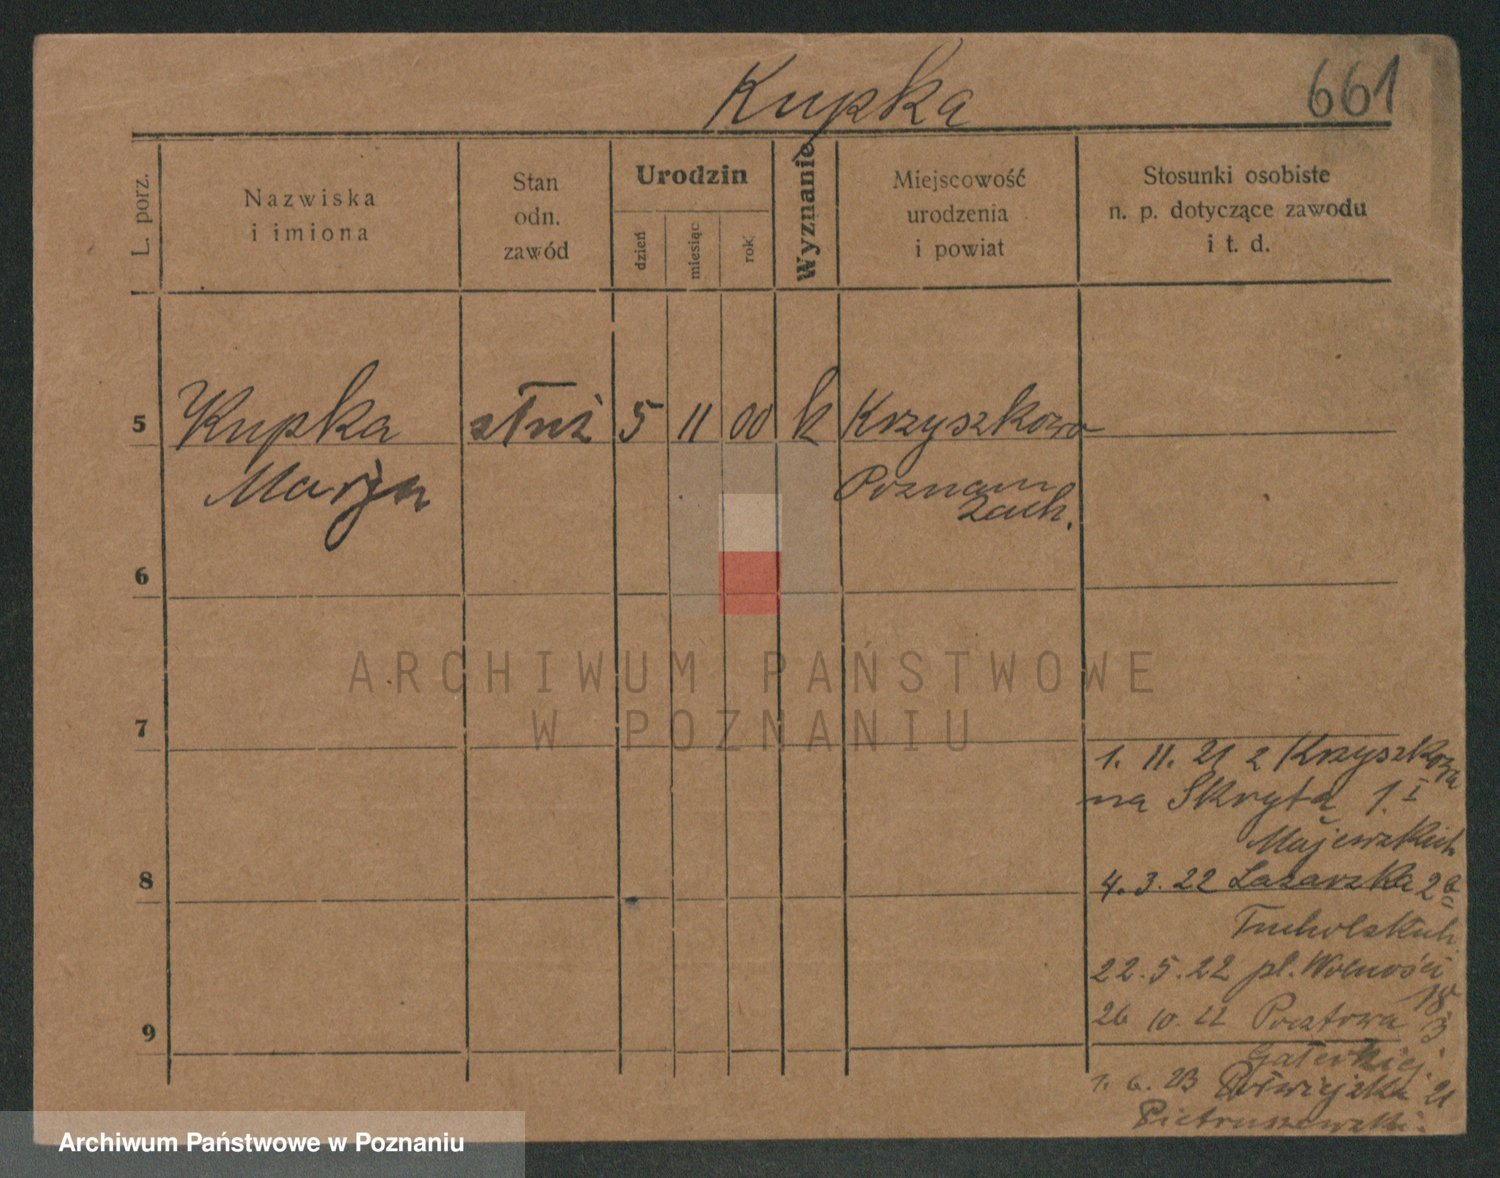 Kupka
661
L. porz.
Nazwiska
i imiona
Stan
odn.
zawód
Urodzin
dzień
miesiąc
rok
Wyznanie
Miejscowość
urodzenia
i powiat
Stosunki osobiste
n. p. dotyczące zawodu
i t. d.
5
Kupka
służ
5
11
00
k
Krzyszkowo
Marja
Poznam
zach.
6
ARCHIWUM PAŃSTWOWE
W POZNANIU
7
1. 11. 21 z Krzyszkowa
na Skryta 1. I
Majewskich
8
4. 3. 22 Lazarska 2a
Tucholskich
22. 5. 22 pl. Wolności
18
26 10. 22 Pocztowa 3
9
1. 6. 23 21
Pietruszewski
Archiwum Państwowe w Poznaniu